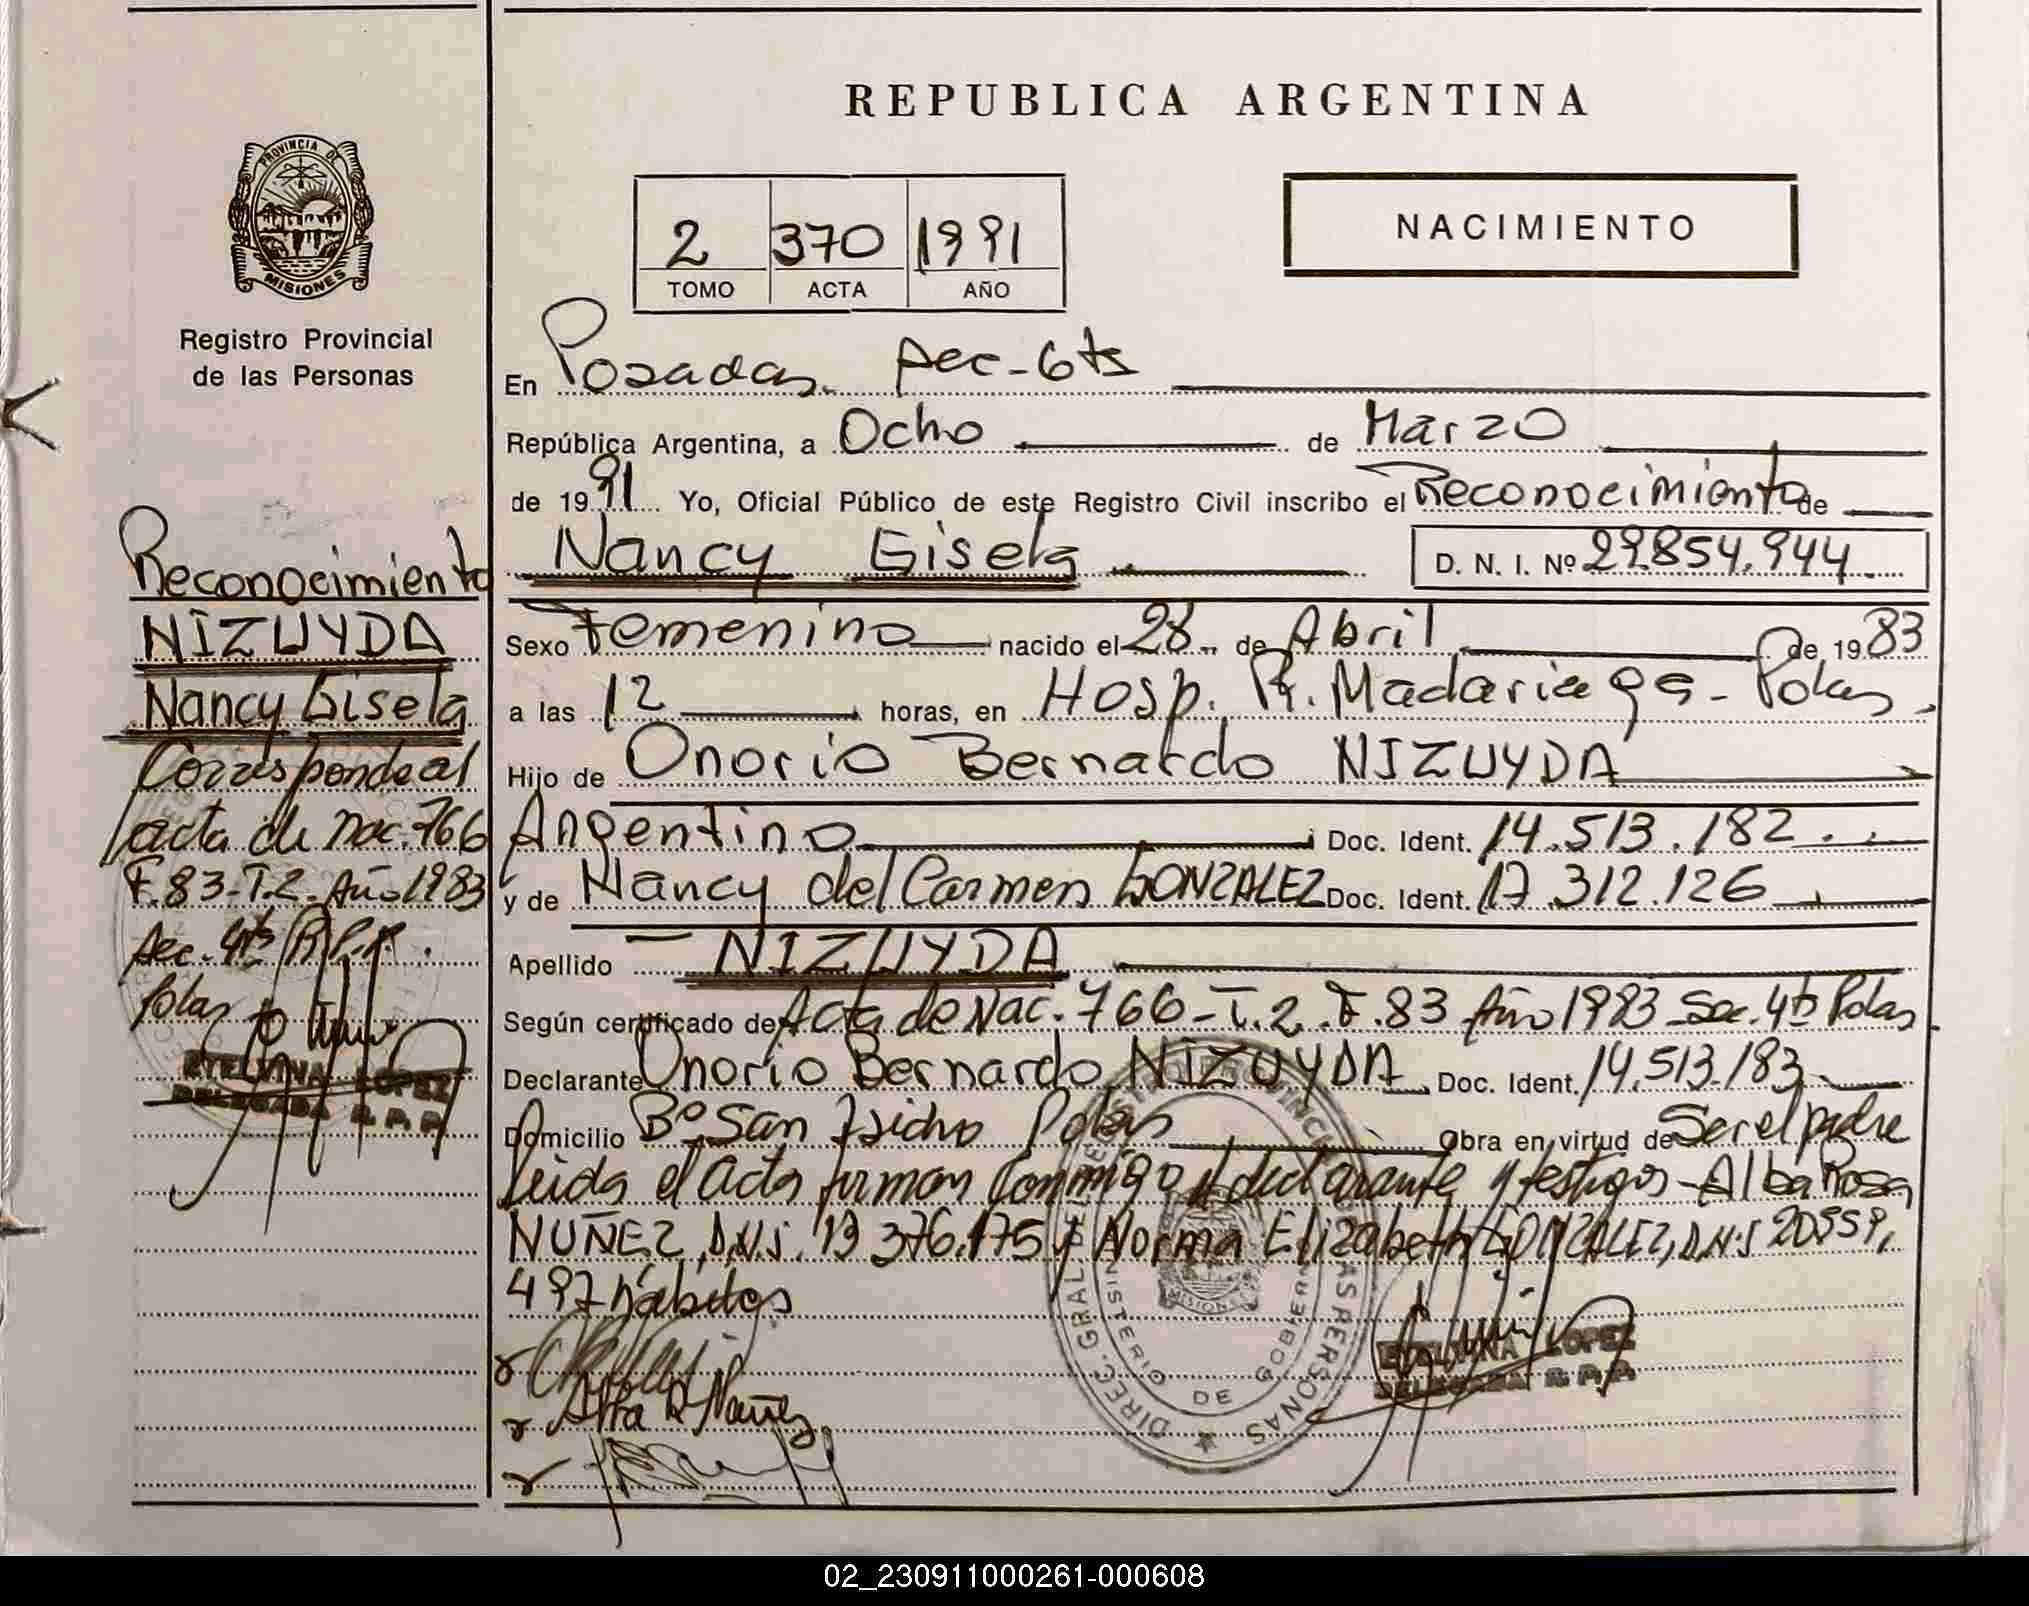 REPUBLICA ARGENTINA
PROVINCIA DE
MISIONES
Registro Provincial
de las Personas
2 370 1991
TOMO ACTA AÑO
NACIMIENTO
En Posadas. Sec-6ta
República Argentina, a Ocho de Marzo
de 1991 Yo, Oficial Público de este Registro Civil inscribo el Reconocimiento de
Nancy Gisela D. N. I. Nº 29.854.944
Sexo Femenino nacido el 28 de Abril de 1983
a las 12 horas, en Hosp. R. Madariaga - Pdas.
Hijo de Onorio Bernardo NIZUYDA
Argentino Doc. Ident. 14.513.182.
y de Nancy del Carmen GONZALEZ Doc. Ident. 17.312.126
Apellido NIZUYDA
Según certificado de Acta de Nac. 766-T.2. F.83 Año 1983 Sec. 4ta Pdas
Declarante Onorio Bernardo NIZUYDA Doc. Ident. 14.513.183
Domicilio Bº San Isidro Pdas Obra en virtud de Ser el padre
Leida el acta firman conmigo el declarante y testigos - Alba Rosa
NUÑEZ, D.N.I. 13.376.175 y Norma Elizabeth GONZALEZ, D.N.I 20.559.
497 hábiles
Alba R Nuñez
ETELVINA LOPEZ
DELEGADA R.P.P.
DIREC. GRAL DEL REGISTRO PROVINCIAL DE LAS PERSONAS
MINISTERIO DE GOBIERNO
MISIONES
Reconocimiento
NIZUYDA
Nancy Gisela
Corresponde al
acta de nac. 766
F.83-T.2-Año 1983
Sec. 4ta R.P.P.
Pdas
ETELVINA LOPEZ
DELEGADA R.P.P.
02_230911000261-000608